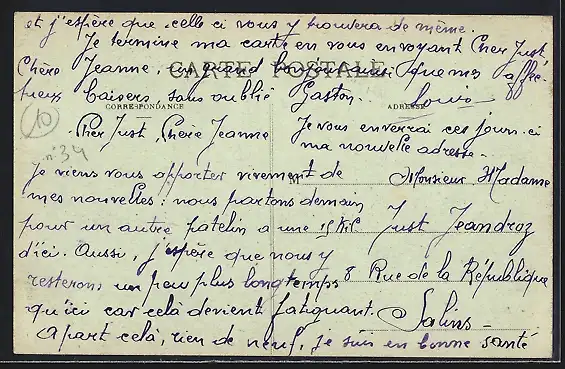 et j'espère que celle ci vous y trouvera de même.
Je termine ma carte en vous envoyant Cher Just,
Chère Jeanne, un grand bonjour ainsi que mes affec-
tueux baisers sans oublié Gaston. Louis
CARTE POSTALE
CORRESPONDANCE
ADRESSE
10
n° 34
Je vous enverrai ces jours-ci
ma nouvelle adresse.
Cher Just, Chère Jeanne
Je viens vous apporter vivement de
mes nouvelles; nous partons demain
pour un autre patelin a une 15 Kil
d'ici. Aussi, j'espère que nous y
resterons un peu plus longtemps
qu'ici car celà devient fatiguant.
Apart celà, rien de neuf, je suis en bonne santé
M
Monsieur Madame
Just Jeandroz
8 Rue de la République
Salins